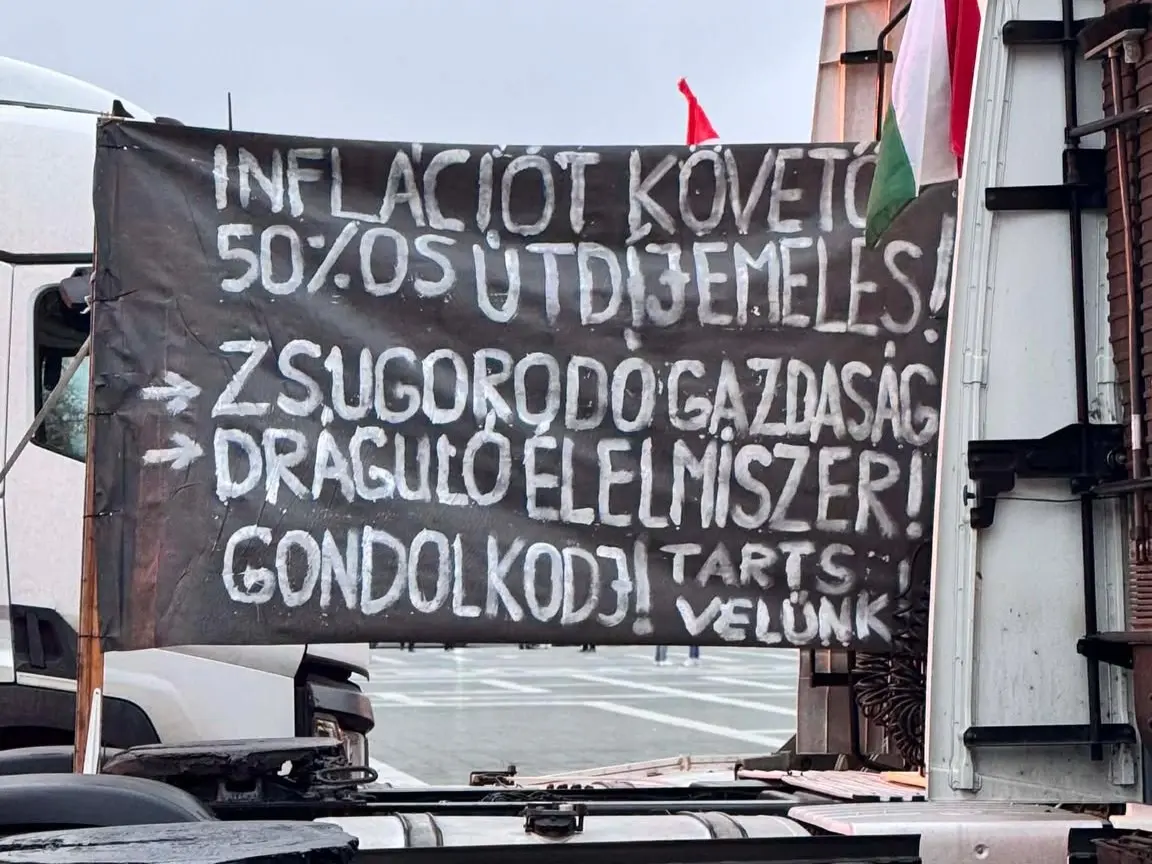 INFLÁCIÓT KÖVETŐ
50%OS ÚTDÍJEMELÉS!
→ ZSUGORODÓ GAZDASÁG
→ DRÁGULÓ ÉLELMISZER!
GONDOLKODJ! TARTS
VELÜNK!